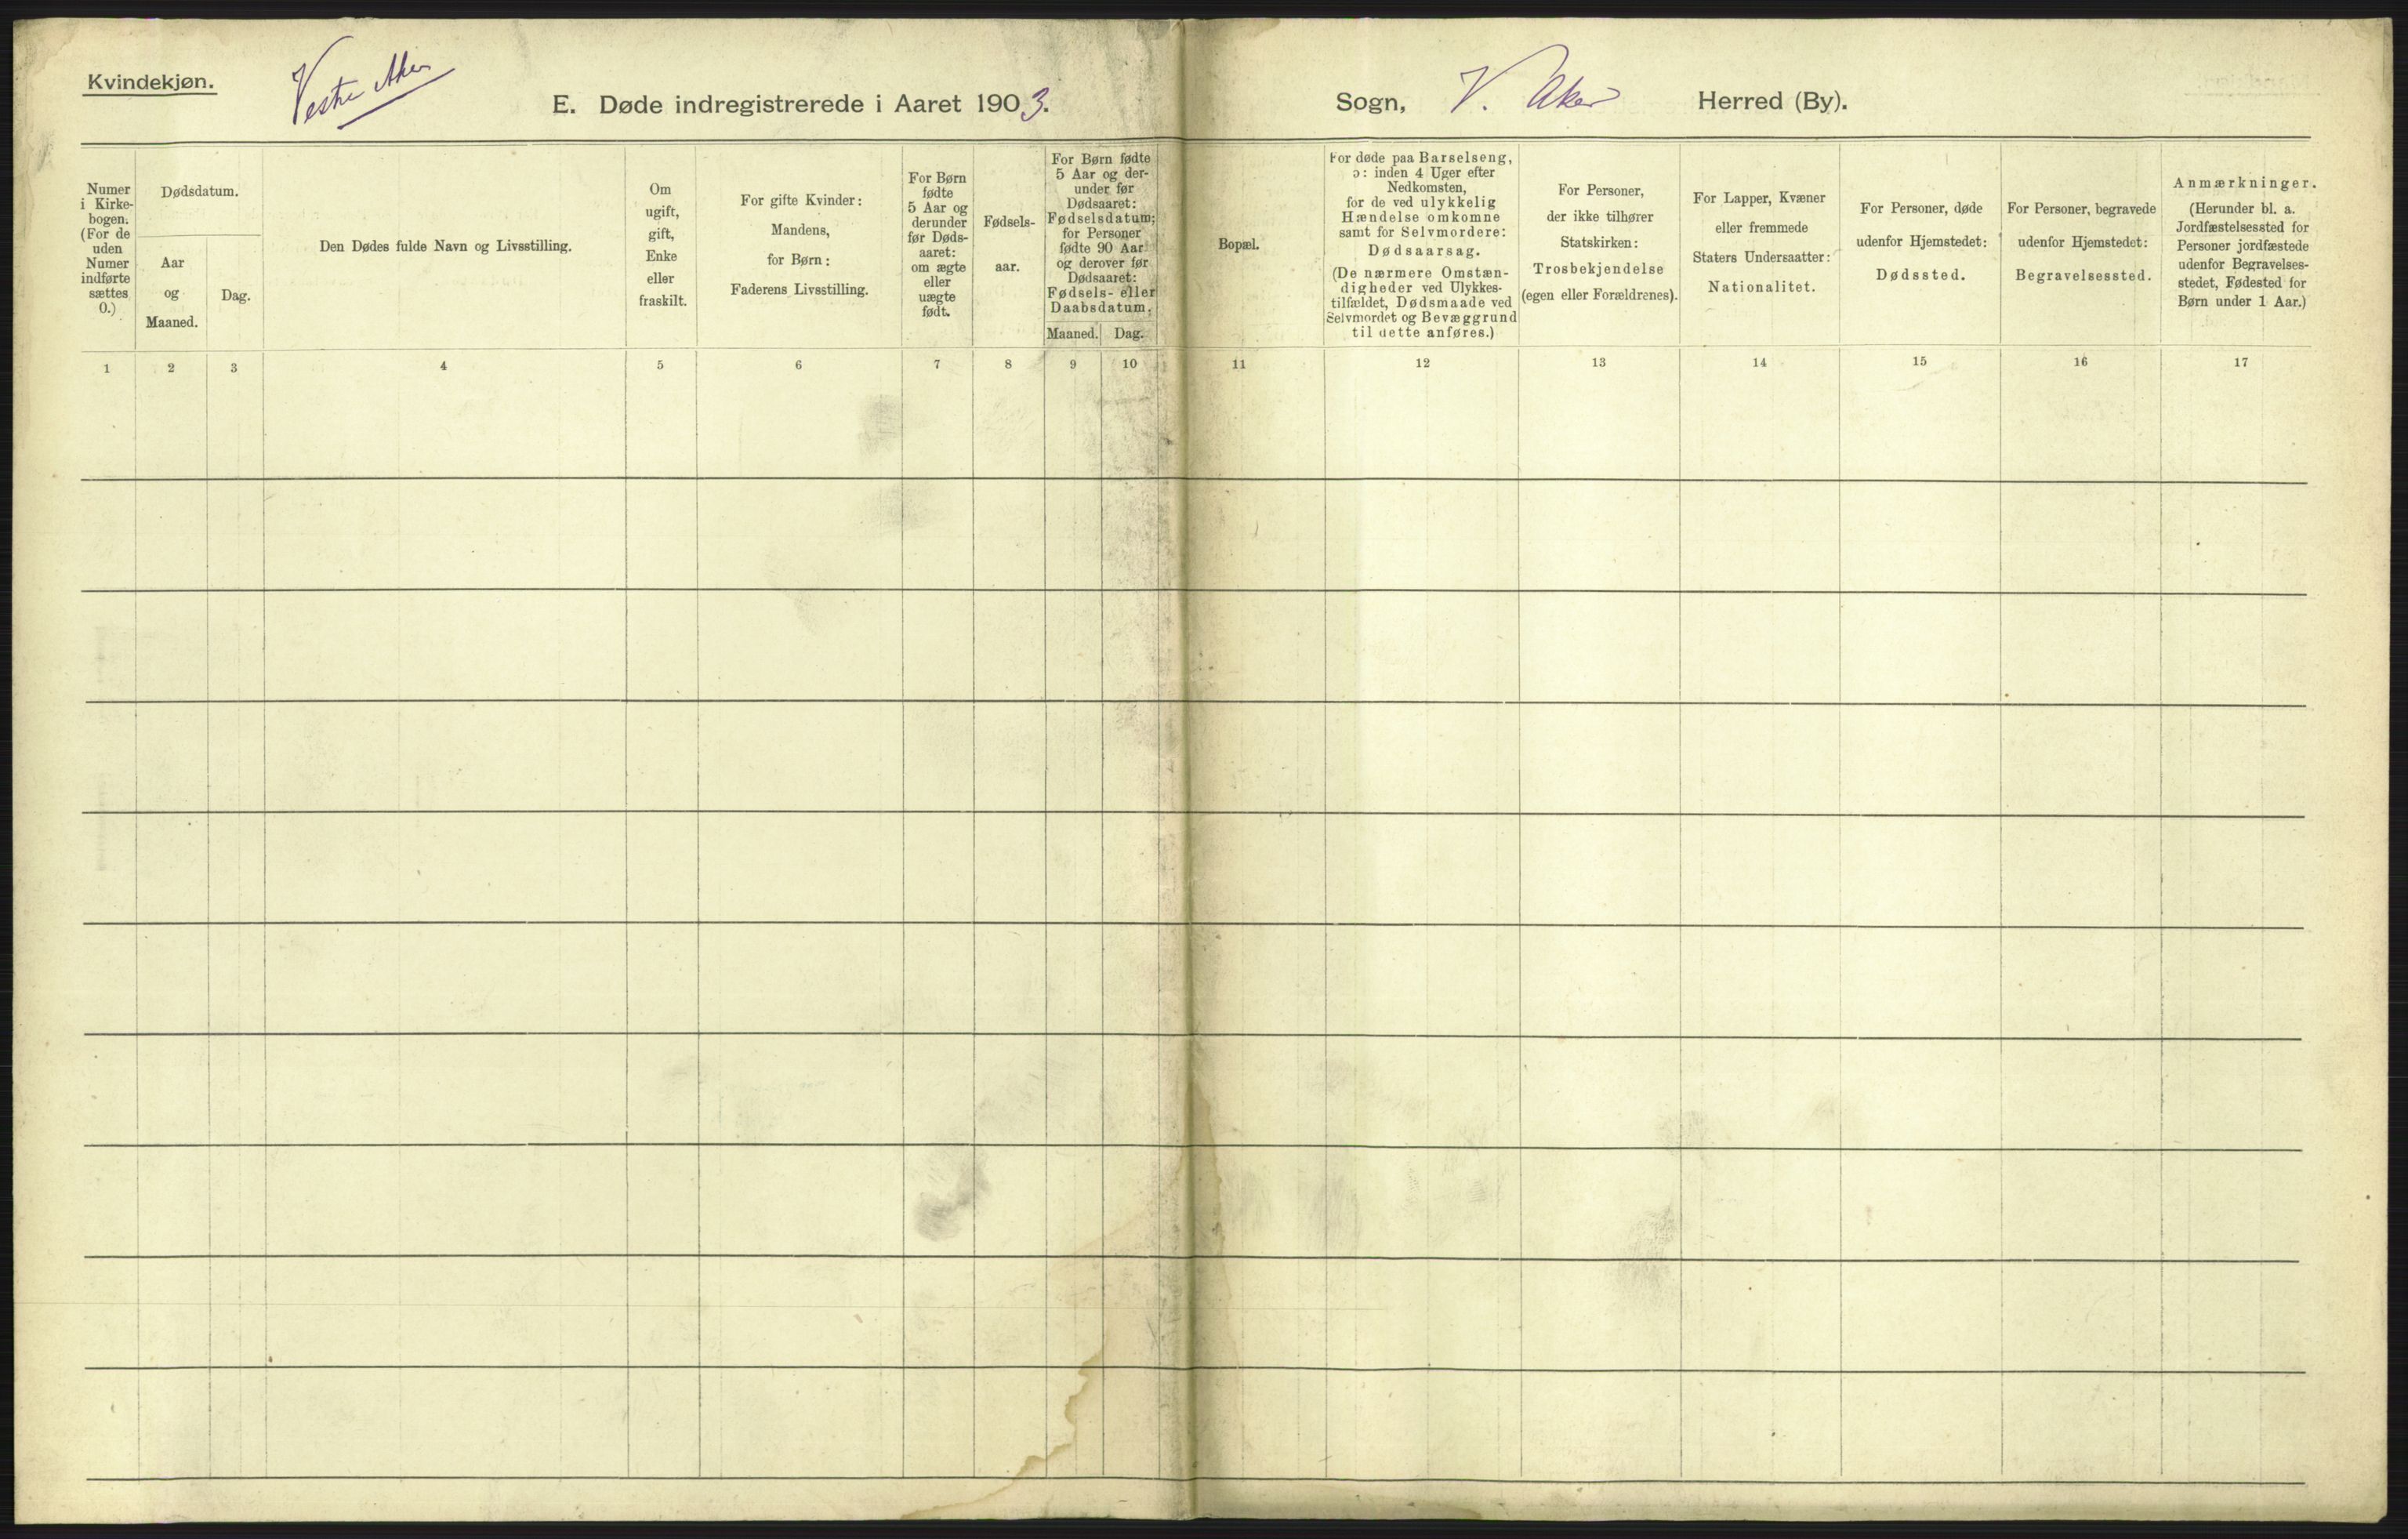 Kvindekjøn.
Vestre Aker
E. Døde indregistrerede i Aaret 1903.
Sogn, V. Aker Herred (By).
Numer
i Kirke-
bogen.
(For de
uden
Numer
indførte
sættes
0.)
Dødsdatum.
Aar
og
Maaned.
Dag.
Den Dødes fulde Navn og Livsstilling.
Om
ugift,
gift,
Enke
eller
fraskilt.
For gifte Kvinder:
Mandens,
for Børn:
Faderens Livsstilling.
For Børn
fødte
5 Aar og
derunder
før Døds-
aaret:
om ægte
eller
uægte
født.
Fødsels-
aar.
For Børn fødte
5 Aar og der-
under før
Dødsaaret:
Fødselsdatum;
for Personer
fødte 90 Aar
og derover før
Dødsaaret:
Fødsels- eller
Daabsdatum.
Maaned. Dag.
Bopæl.
For døde paa Barselseng,
ɔ: inden 4 Uger efter
Nedkomsten,
for de ved ulykkelig
Hændelse omkomne
samt for Selvmordere:
Dødsaarsag.
(De nærmere Omstæn-
digheder ved Ulykkes-
tilfældet, Dødsmaade ved
Selvmordet og Bevæggrund
til dette anføres.)
For Personer,
der ikke tilhører
Statskirken:
Trosbekjendelse
(egen eller Forældrenes).
For Lapper, Kvæner
eller fremmede
Staters Undersaatter:
Nationalitet.
For Personer, døde
udenfor Hjemstedet:
Dødssted.
For Personer, begravede
udenfor Hjemstedet:
Begravelsessted.
Anmærkninger.
(Herunder bl. a.
Jordfæstelsessted for
Personer jordfæstede
udenfor Begravelses-
stedet, Fødested for
Børn under 1 Aar.)
1 2 3 4 5 6 7 8 9 10 11 12 13 14 15 16 17